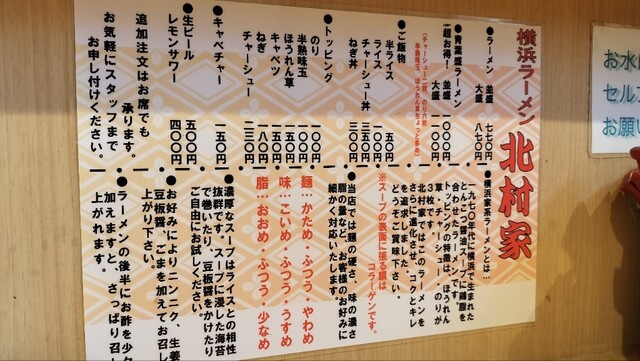 横浜ラーメン 北村家
●ラーメン 並盛 七七〇円
大盛 八七〇円
●青葉盛ラーメン
(超お得!) 並盛 一〇〇〇円
大盛 一一〇〇円
●ご飯物
半ライス 五〇円
ライス 一〇〇円
チャーシュー丼 三五〇円
ねぎ丼 三〇〇円
●トッピング
のり 一〇〇円
半熟味玉 一〇〇円
ほうれん草 一五〇円
キャベツ 一〇〇円
ねぎ 一八〇円
チャーシュー 二三〇円
●キャベチャー 一五〇円
●生ビール 五〇〇円
レモンサワー 四〇〇円
追加注文はお席でも
承ります。
お気軽にスタッフまで
お申し付けください。
●横浜家系ラーメンとは…
一九七〇年代に横浜で生まれた
とんこつ醤油に鶏脂を
合わせたラーメンです。
トッピングの特徴は、ほうれん
草・チャーシュー・のりが
3枚です。
北村家ではこのラーメンを
さらに進化させ、コクとキレ
を追求しました。
どうぞご賞味下さい。
※スープの表面に張る膜は
コラーゲンです。
●当店では麺の硬さ、味の濃さ
脂の量など、お客様のお好みに
細かく対応いたします。
麺…かため・ふつう・やわめ
味…こいめ・ふつう・うすめ
脂…おおめ・ふつう・少なめ
●濃厚なスープはライスとの相性
抜群です。スープに浸した海苔
で巻いたり、豆板醤をかけたり
ご自由にお試しください。
●お好みによりニンニク、生姜
豆板醤、ごまを加えてお召し
上がり下さい。
●ラーメンの後半にお酢を少々
加えますと、さっぱり召し
上がれます。
お水
セルフ
お願い